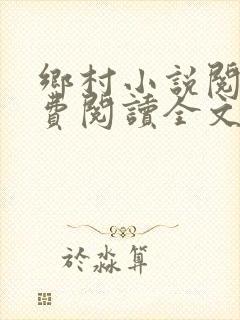 鄉村小說閱
費閱讀全文
於淼算